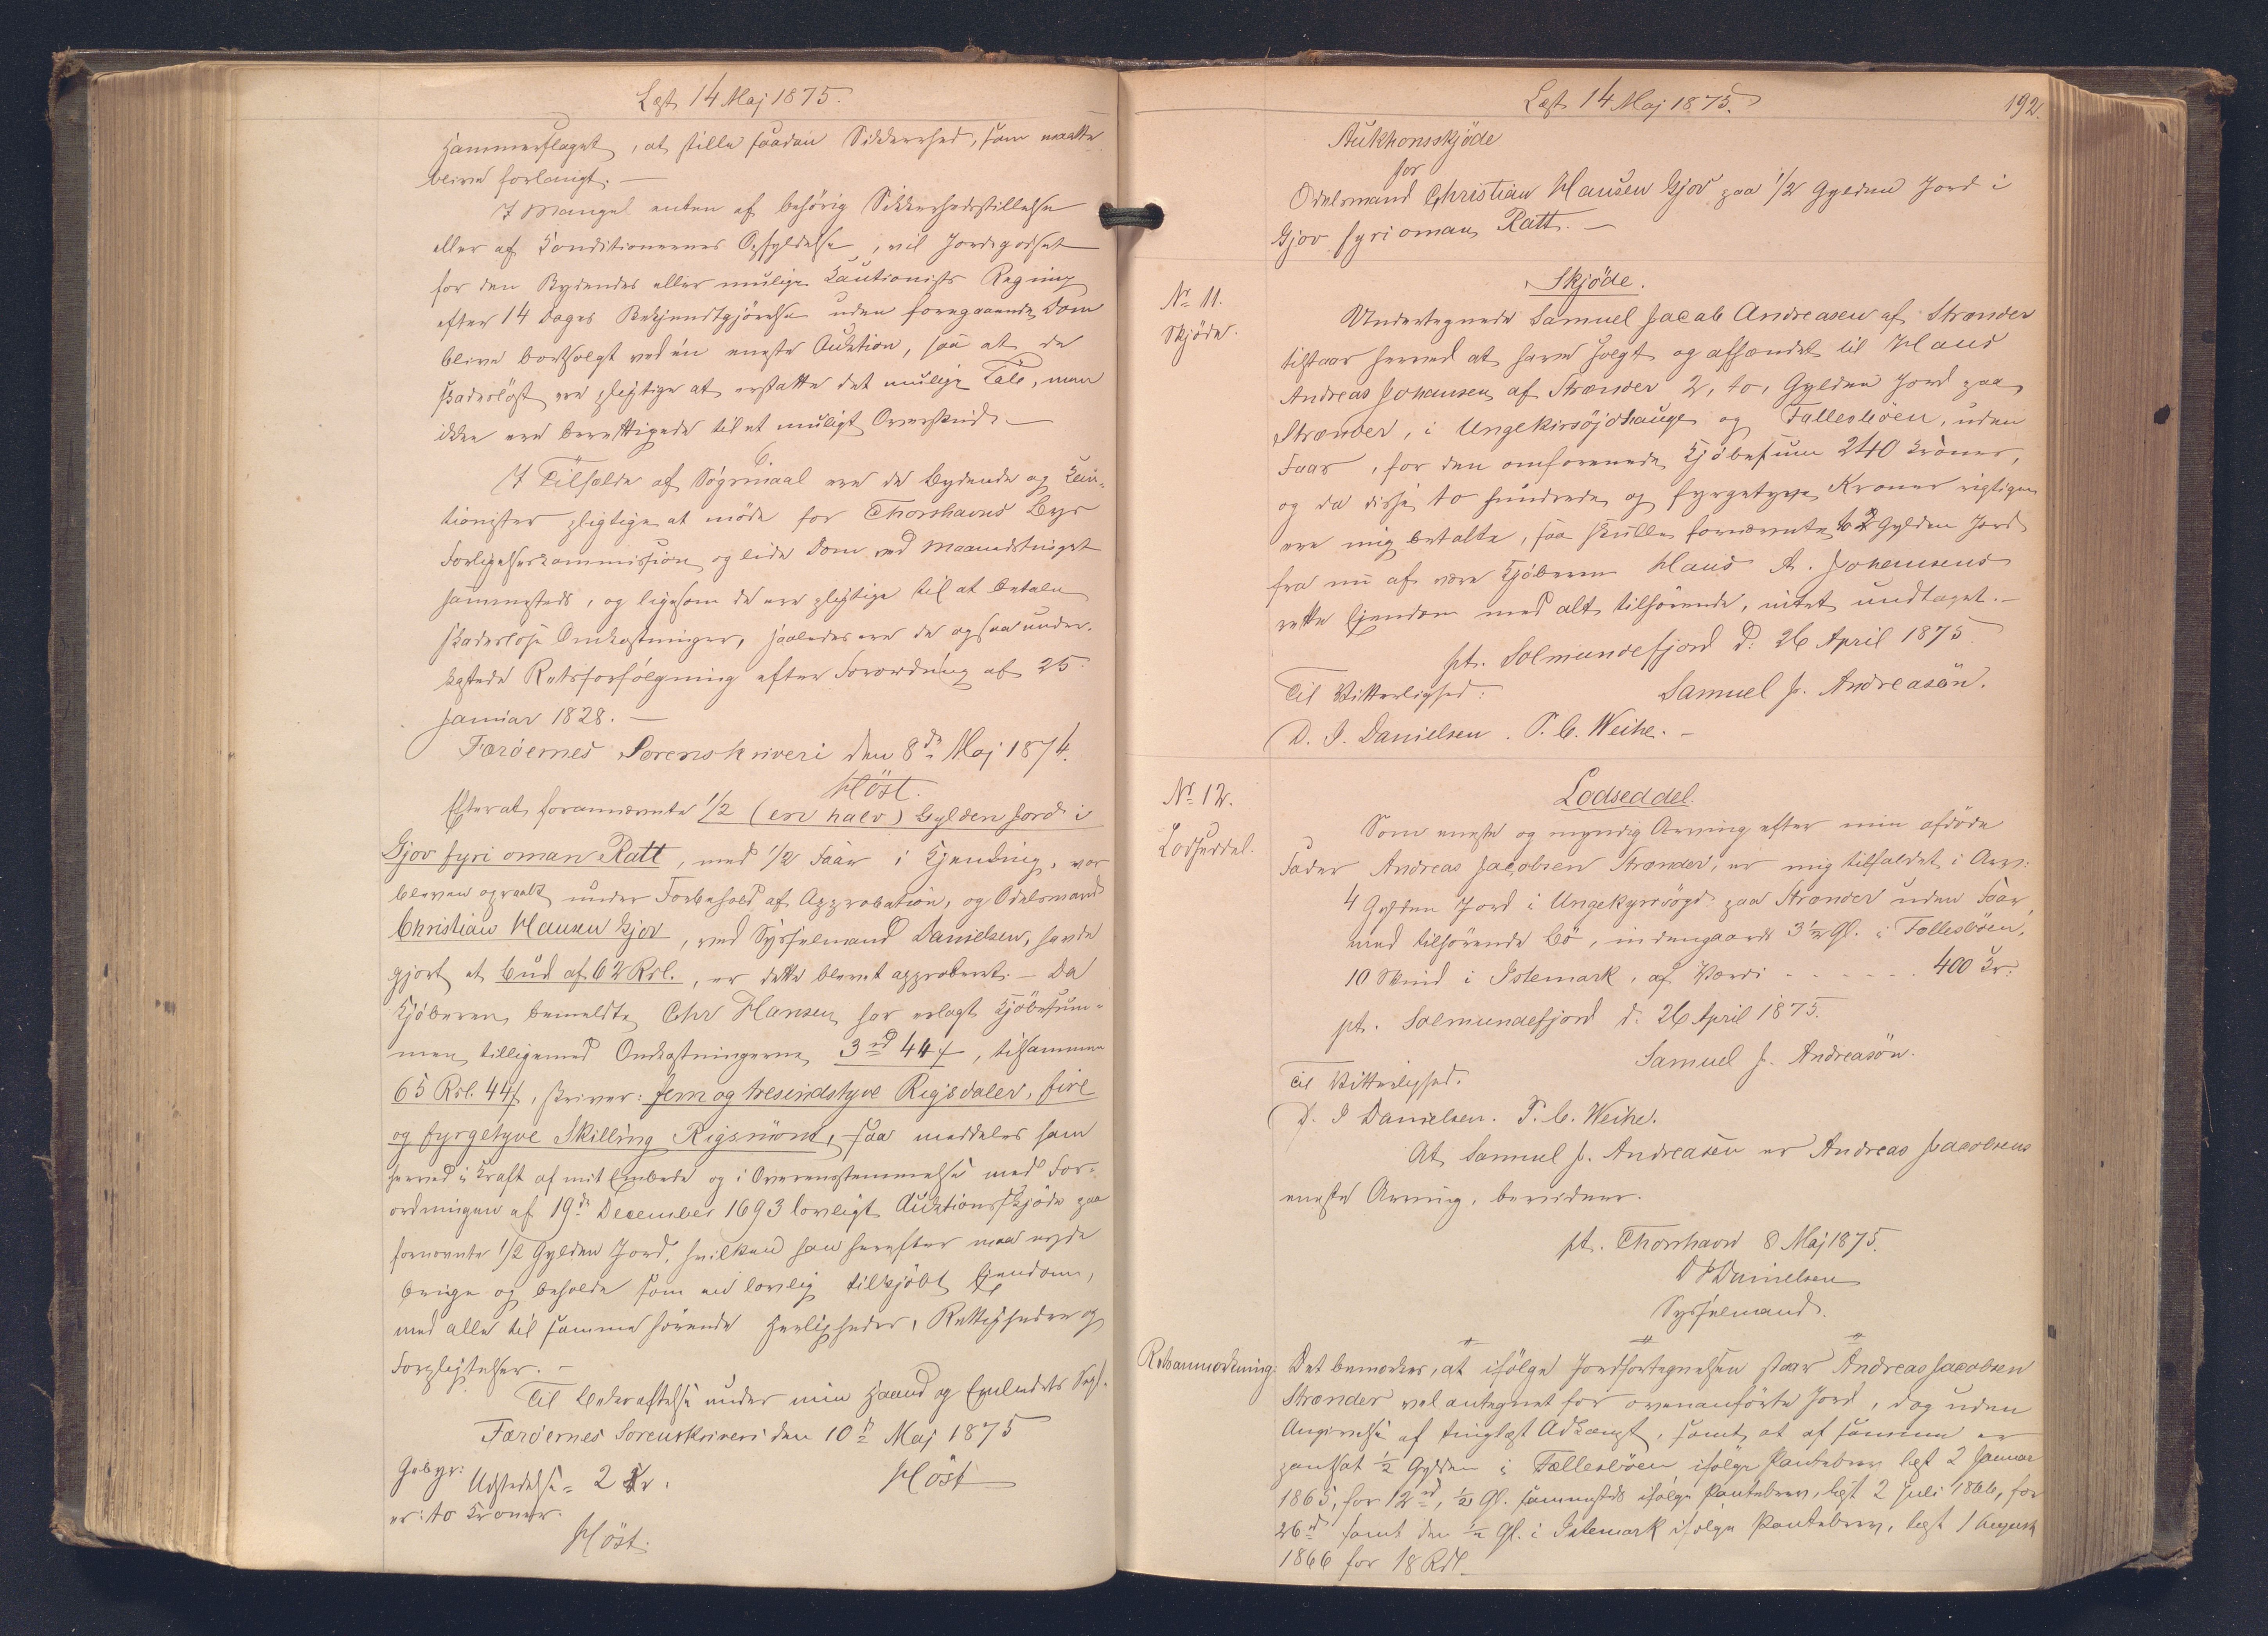 Læst 14 Maj 1875.
Hammerslaget, at stille saadan Sikkerhed, som maatte
blive forlangt. —
I Mangel enten af behörig Sikkerhedsstillelse
eller af Konditionernes Opfyldelse, vil Jordegodset
for den Bydendes eller mulige Kautionists Regning
efter 14 Dages Bekjendtgjörelse uden foregaaende Dom
blive bortsolgt ved én eneste Auktion, saa at de
skadeslöst ere pligtige at erstatte det mulige Tab, men
ikke ere berettigede til et muligt Overskud. —
6.
I Tilfælde af Søgsmaal ere de Bydende og Kau-
tionister pligtige at möde for Thorshavns Byes
Forligelseskommission og lide Dom ved Maanedstinget
sammesteds, og ligesom de ere pligtige til at betale
skadeslöse Omkostninger, saaledes ere de ogsaa under-
kastede Retsforfölgning efter Forordning af 25
Januar 1828. —
Færöernes Sorenskriveri den 8de Maj 1874.
Höst.
Efterat forannævnte 1/2 (en halv) Gylden Jord i
Gjov fyri oman Ratt, med 1/2 Faar i Kjending, var
bleven opraabt under Forbehold af Approbation, og Odelsmand
Christian Hansen Gjov, ved Sysselmand Danielsen, havde
gjort et Bud af 62 Rdl., er dette blevet approberet. — Da
Kjöberen bemeldte Chr Hansen har erlagt Kjöbesum-
men tilligemed Omkostningerne 3 rd 44 ß, tilsammen
65 Rdl. 44 ß, skriver: fem og tresindstyve Rigsdaler, fire
og fyrgetyve Skilling Rigsmönt, saa meddeles ham
herved i Kraft af mit Embede og i Overensstemmelse med For-
ordningen af 19de December 1693 lovligt Auktionsskjöde paa
fornævnte 1/2 Gylden Jord, hvilken han herefter maa nyde
bruge og beholde som en lovlig tilkjöbt Ejendom,
med alle til samme hörende Herligheder, Rettigheder og
Forpligtelser. —
Til Bekræftelse under min Haand og Embedets Segl.
Færöernes Sorenskriveri den 10de Maj 1875
Höst
Gebyr: Udstedelse = 2 Kr.
er: to Kroner.
Höst.
Læst 14 Maj 1875.
192.
Auktionsskjöde
for
Odelsmand Christian Hansen Gjov paa 1/2 Gylden Jord i
Gjov fyri oman Ratt. —
No 11.
Skjöde.
Skjöde.
Undertegnede Samuel Jacob Andreasen af Strænder
tilstaar herved at have solgt og afhændet til Hans
Andreas Johansen af Strænder 2, to, Gylden Jord paa
Strænder, i Ungekirsöjdhauge og Fallesböen, uden
Faar, for den omforenede Kjöbesum 240 Kroner,
og da disse to hundrede og fyrgetyve Kroner rigtigen
ere mig betalte, saa skulle fornævnte to 2 Gylden Jord
fra nu af være Kjöberen Hans A. Johansens
rette Ejendom med alt tilhörende, intet undtaget. —
pt. Solmundefjord d. 26 April 1875
Til Vitterlighed:
Samuel J. Andreasön.
D. I. Danielsen. P. C. Weihe. —
No 12.
Lodseddel.
Lodseddel.
Som eneste og myndig Arving efter min afdöde
Fader Andreas Jacobsen Strænder, er mig tilfaldet i Arv:
4 Gylden Jord i Ungekyrsögd paa Strænder uden Faar,
med tilhörende Bö, indengaards 3 1/2 Gl. i Fællesböen,
10 Skind i Istemark, af Værdi - - - - - - 400 Kr.
pt. Solmundefjord d. 26 April 1875.
Samuel J. Andreasön.
Til Vitterlighed.
D. I Danielsen. P. C. Weihe.
At Samuel J. Andreasen er Andreas Jacobsens
eneste Arving, bevidner.
pt. Thorshavn 8 Maj 1875.
D I Danielsen
Sysselmand.
Retsanmærkning:
Det bemærkes, at ifölge Jordfortegnelsen staar Andreas Jacobsen
Strænder vel antegnet for ovenanförte Jord, dog uden
Angivelse af tinglæst Adkomst, samt at af samme er
pantsat 1/2 Gylden i Fællesböen ifölge Pantebrev læst 2 Januar
1865, for 12 rd, 1/2 Gl. sammesteds ifölge Pantebrev, læst 2 Juli 1866, for
26 rd samt den 1/2 Gl. i Istemark ifölge Pantebrev, læst 1 August
1866 for 18 Rdl.